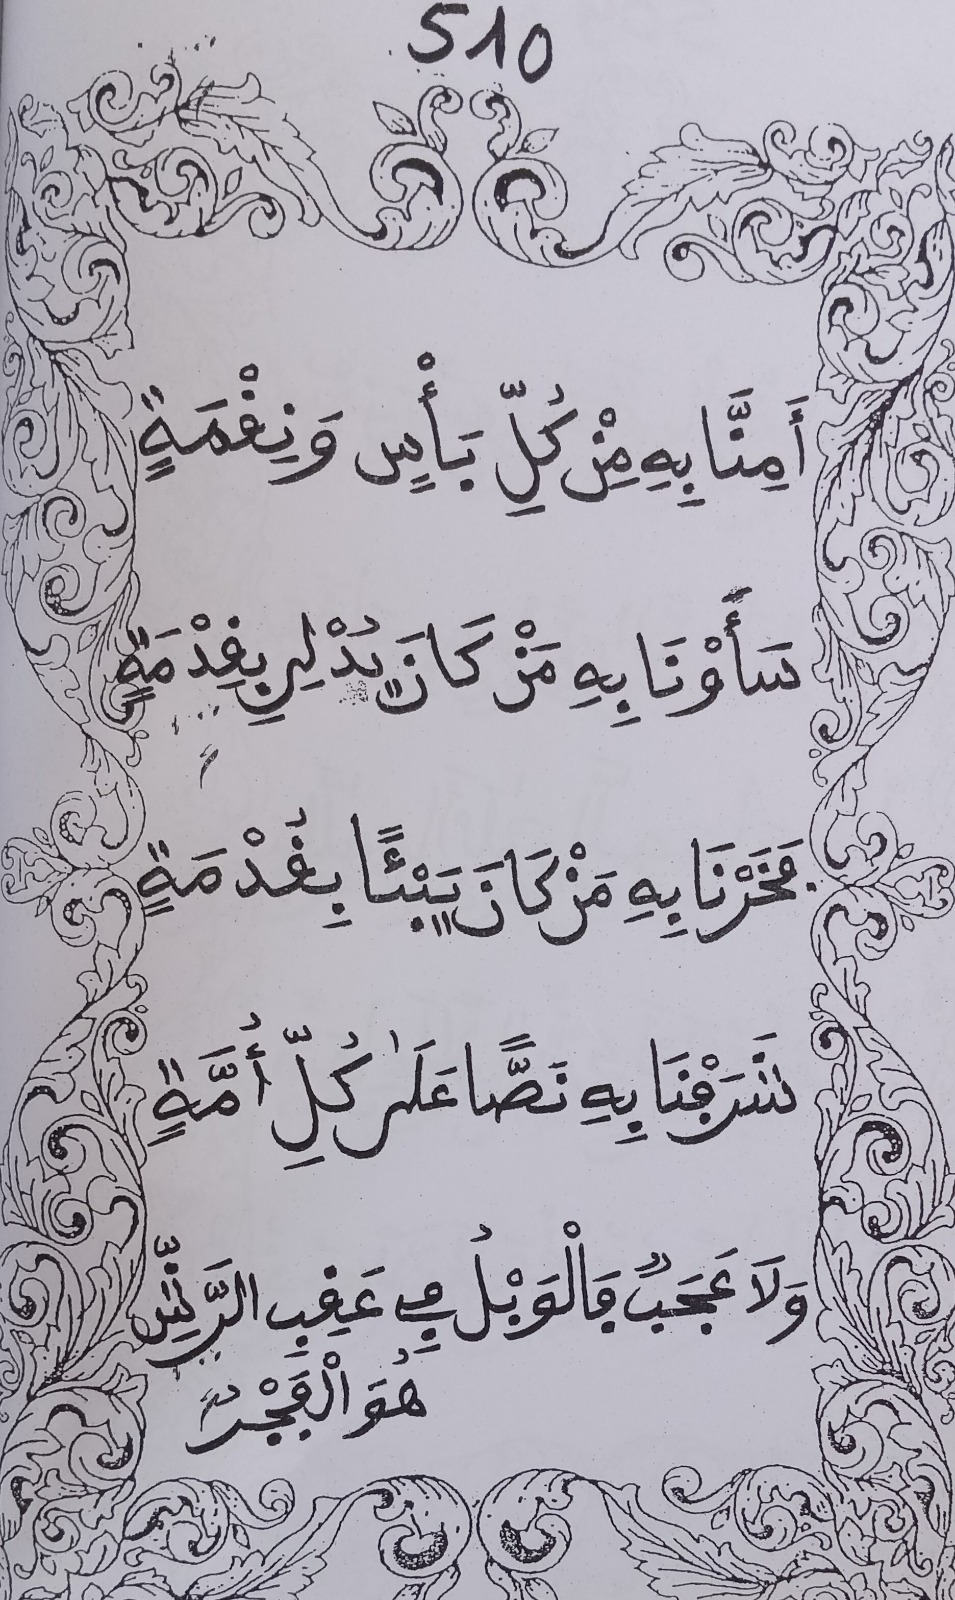 510
أَمِنَّا بِهِ مِنْ كُلِّ بَأْسٍ وَنِقْمَةٍ
سَأَوْنَا بِهِ مَنْ كَانَ يُدْلِى بِقِدْمَةٍ
فَخَرْنَا بِهِ مَنْ كَانَ بِقُدْمَةٍ
شَرَفْنَا بِهِ نَصًّا عَلَى كُلِّ أُمَّةٍ
وَلَا عَجَبٌ فَالْوَبْلُ فِي عَقِبِ الرَّشِّ
هُوَ الْفَجْرُ